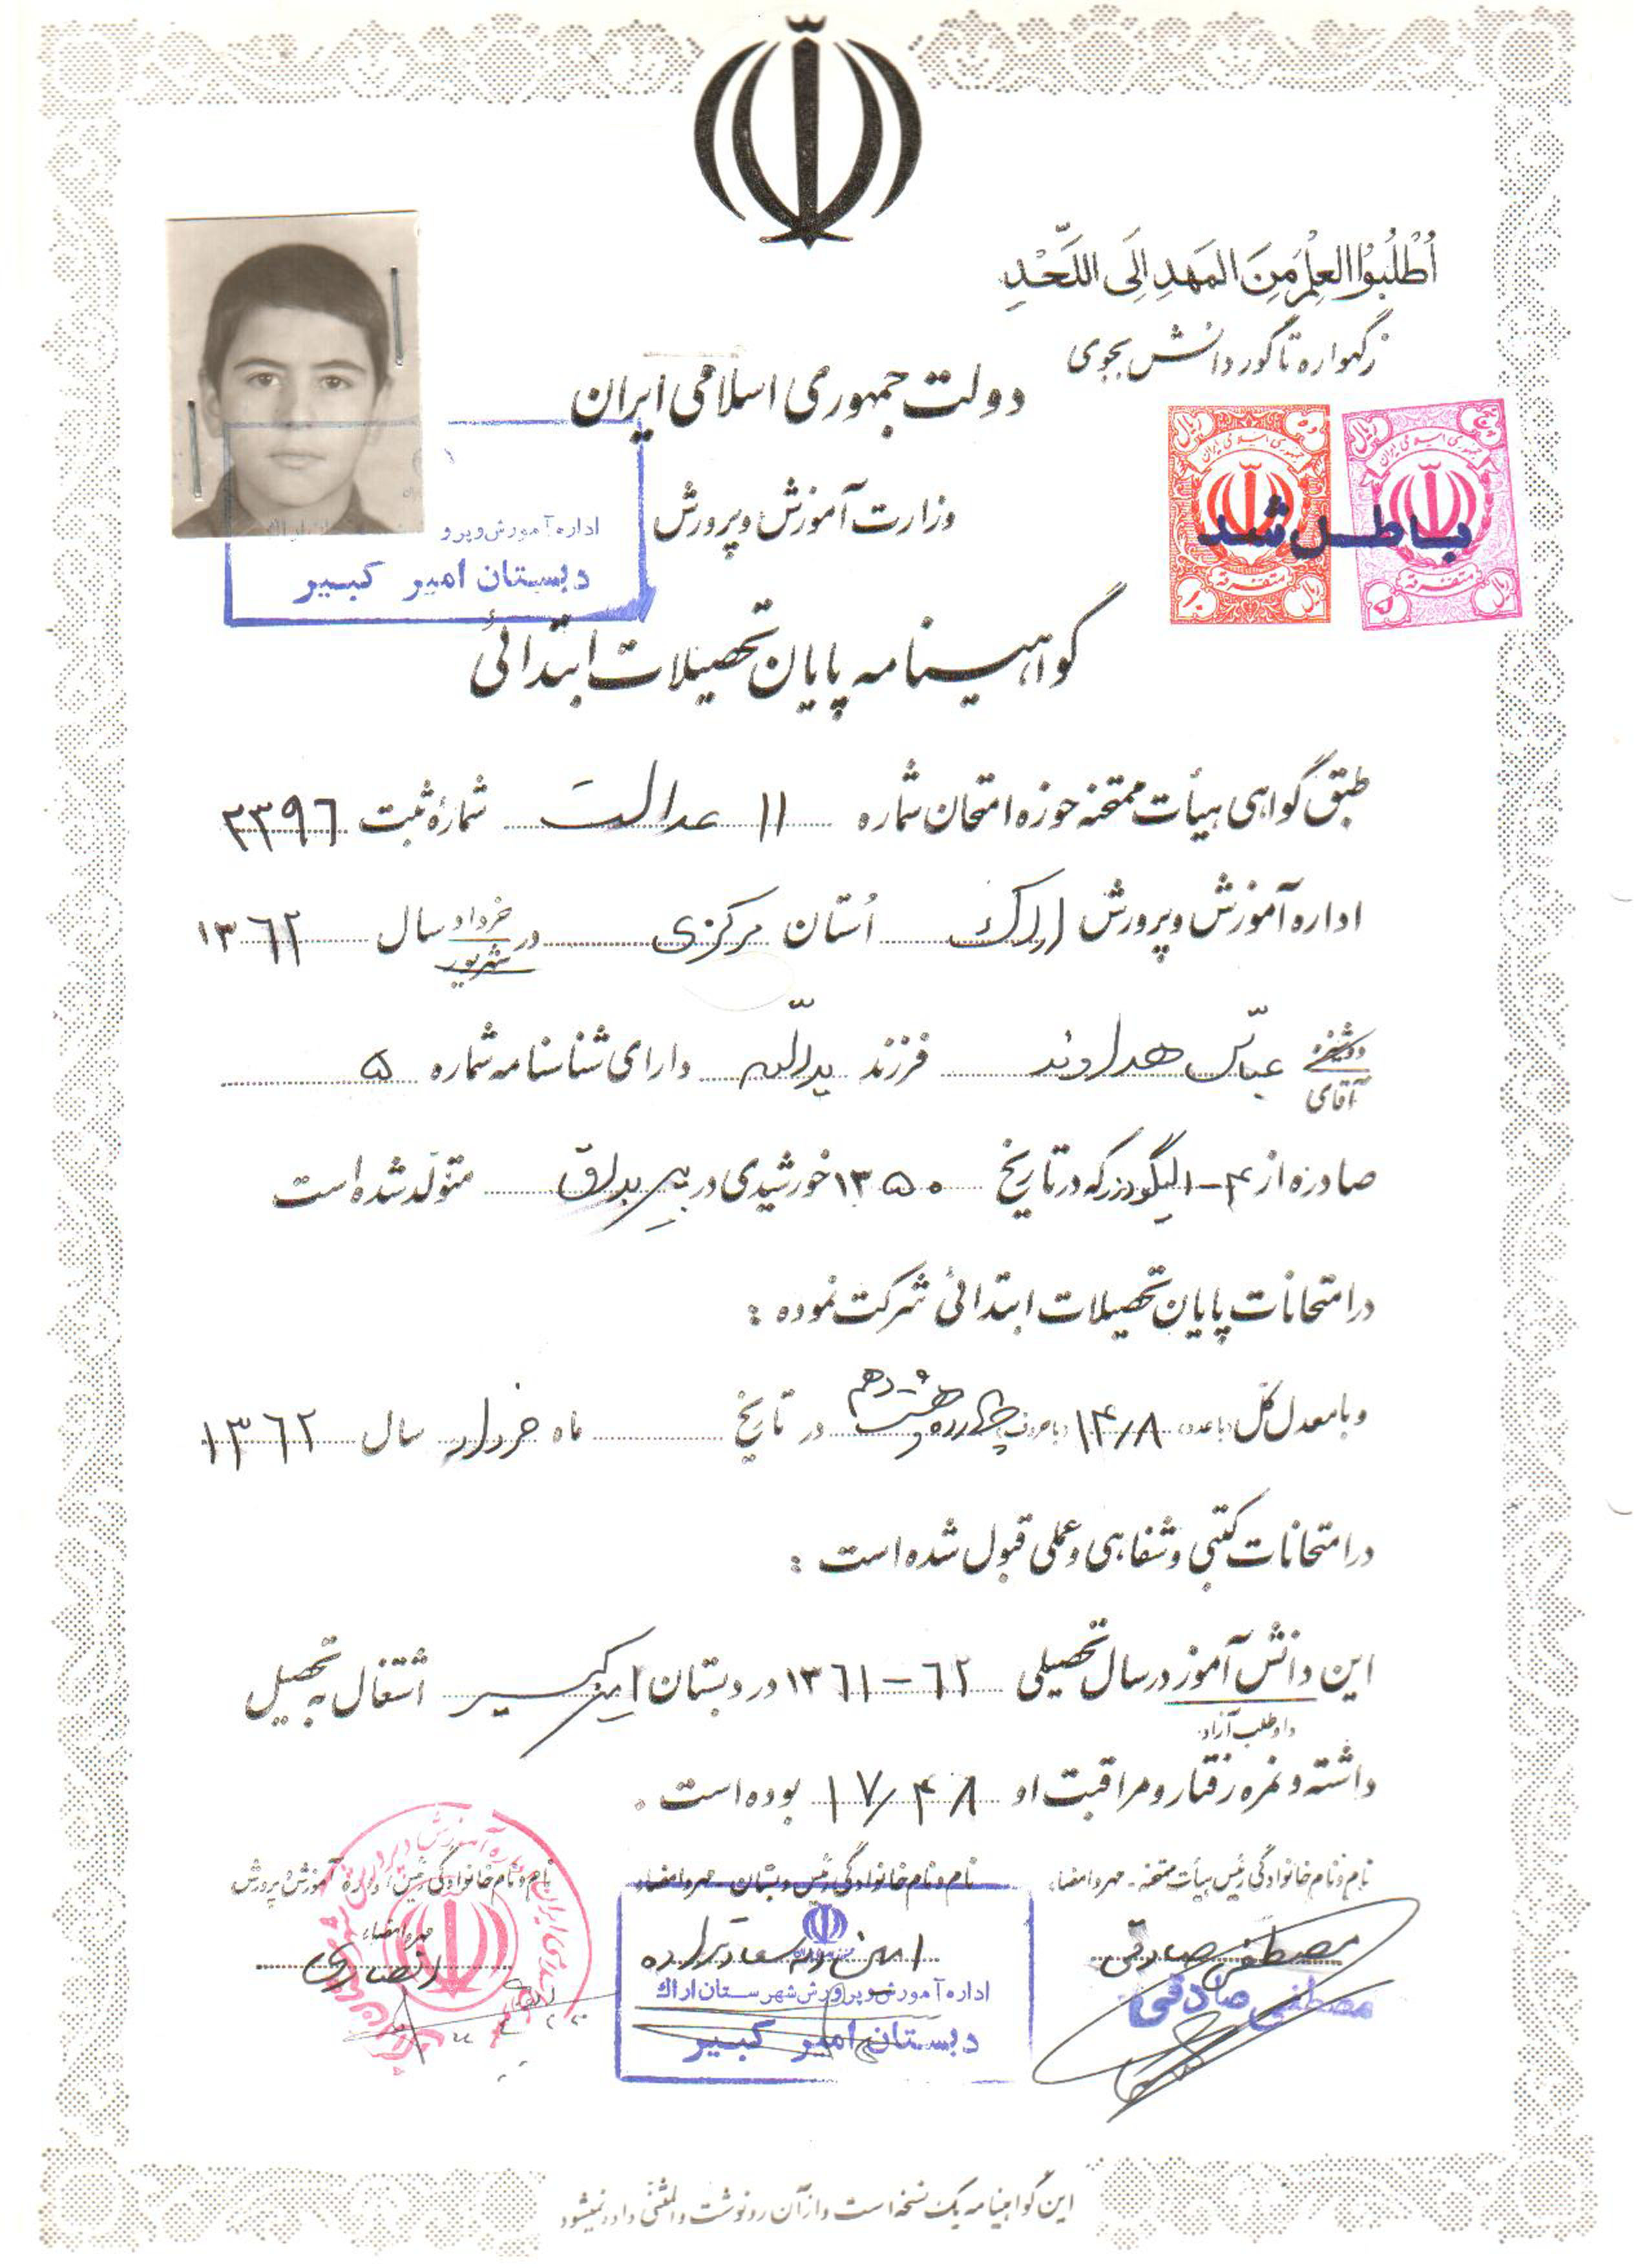 اُطْلُبُوا العِلْمَ مِنَ المَهدِ اِلَی اللَّحْدِ
زگهواره تا گور دانش بجوی
دولت جمهوری اسلامی ایران
وزارت آموزش و پرورش
ده ریال
پنج ریال
جمهوری اسلامی ایران
جمهوری اسلامی ایران
باطل شد
متفرقه
متفرقه
اداره آموزش و پرو اراك
دبستان امیر کبیر
گواهینامه پایان تحصیلات ابتدائی
طبق گواهی هیأت ممتحنه حوزه امتحان شماره ۱۱ عدالت شمارهٔ ثبت ۳۳۹۶
اداره آموزش و پرورش اراک اُستان مرکزی در خرداد شهریور سال ۱۳۶۲
دوشیزه آقای عباس هداوند فرزند یداللّه دارای شناسنامه شماره ۵
صادره از ۴-الیگودرز که در تاریخ ۱۳۵۰ خورشیدی در متولّد شده است
در امتحانات پایان تحصیلات ابتدائی شرکت نموده :
و با معدل کل (با عدد) ۱۴/۸ (با حروف) چهارده و هشت دهم در تاریخ ماه خرداد سال ۱۳۶۲
در امتحانات کتبی و شفاهی و عملی قبول شده است :
این دانش آموز داوطلب آزاد در سال تحصیلی ۶۲-۱۳۶۱ در دبستان امیرکبیر اشتغال به تحصیل
داشته و نمره رفتار و مراقبت او ۱۷/۴۸ بوده است .
نام و نام خانوادگی رئیس هیأت ممتحنه - مهر و امضاء
نام و نام خانوادگی رئیس دبستان - مهر و امضاء
نام و نام خانوادگی رئیس اداره آموزش و پرورش
مهر و امضاء
مصطفی صادقی
مصطفی صادقی
انصاری
اداره آموزش و پرورش شهرستان اراك
دبستان امیر کبیر
این گواهینامه یک نسخه است و از آن رونوشت و المثنی داده نمیشود